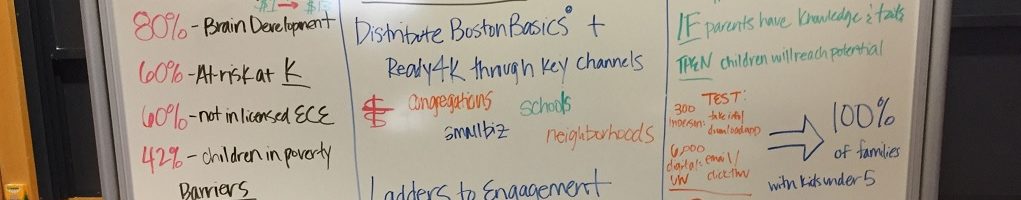 $1 → $15
80% - Brain Development
60% - At-risk at K
60% - not in licensed ECE
42% - children in poverty
Barriers
Distribute BostonBasics +
Ready4K through key channels
$ congregations schools
smallbiz neighborhoods
Ladders to Engagement
IF parents have knowledge & tools
THEN children will reach potential
TEST:
300
inperson: take info/
download app
6,000
digital: email/
UW click thru
100%
of families
with kids under 5